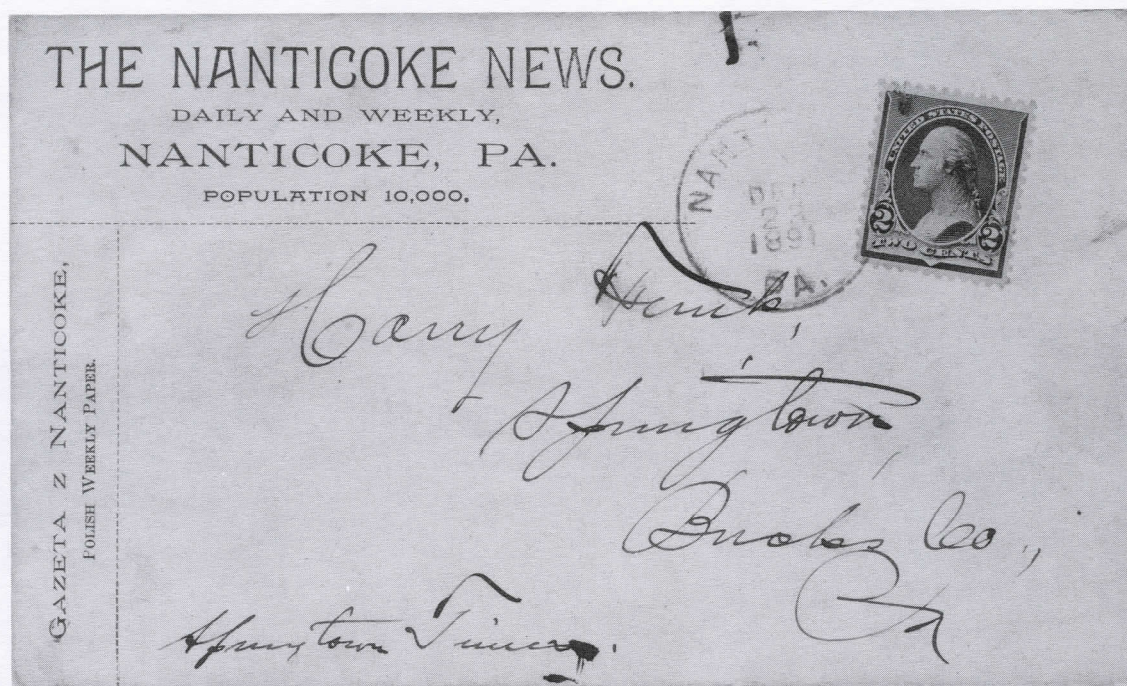 THE NANTICOKE NEWS.
DAILY AND WEEKLY,
NANTICOKE, PA.
POPULATION 10,000.
GAZETA Z NANTICOKE,
POLISH WEEKLY PAPER.
NAN
PA.
UNITED STATES POSTAGE
2 2
TWO CENTS
Harry
Springtown,
Bucks Co.,
Pa
Springtown Times.